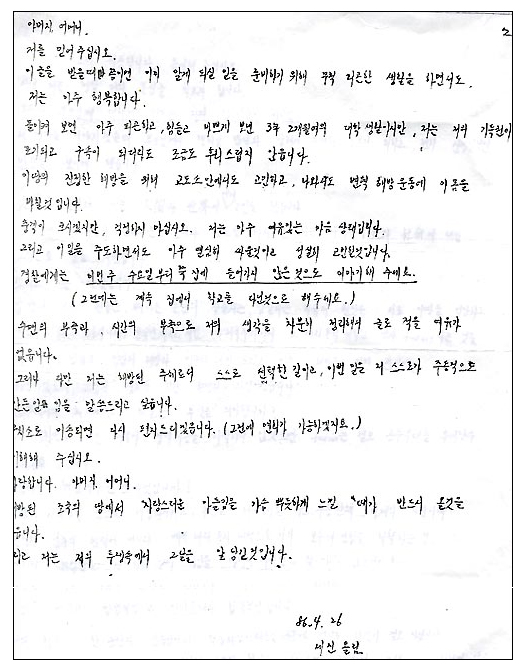 2
아버지, 어머니.
저를 믿어 주십시오.
이 글을 받을때 쯤이면 이미 알게 되실 일을 준비하기 위해 무척 피곤한 생활을 하면서도,
저는 아주 행복합니다.
돌이켜 보면 아주 피곤하고, 힘들고 바쁘게 보낸 3년 2개월여의 대학생활이지만, 저는 저의 기득권이
포기되고 구속이 되더라도 조금도 후회스럽지 않습니다.
이땅의 진정한 해방을 위해 교도소안에서도 고민하고, 나와서도 민족 해방운동에 이몸을
바칠것입니다.
충격이 크시겠지만, 걱정하지 마십시오. 저는 아주 여유있는 마음 상태입니다.
그리고 이일을 주도하면서도 아주 열심히 싸울것이고 성실히 고민할것입니다.
경찰에게는 이번주 수요일부터 쭉 집에 들어가지 않은것으로 이야기해 주세요.
(그전에는 계속 집에서 학교를 다닌것으로 해주세요.)
수면의 부족과 시간의 부족으로 저의 생각을 차분히 정리해서 글로 적을 여유가
없습니다.
그러나 다만 저는 해방된 주체로서 스스로 선택한 길이고, 이번 일을 저 스스로가 주동적으로
만든일임을 말씀드리고 싶습니다.
이송되면 다시 편지드리겠습니다. (그전에 면회가 가능하겠지요.)
이해해 주십시오.
사랑합니다. 아버지, 어머니.
해방된 조국의 땅에서 자랑스러운 아들임을 가슴 뿌듯하게 느낄 때가 반드시 올것을
믿습니다.
저는 저의 투쟁속에서 그날을 앞당길것입니다.
86. 4. 26
세진 올림.